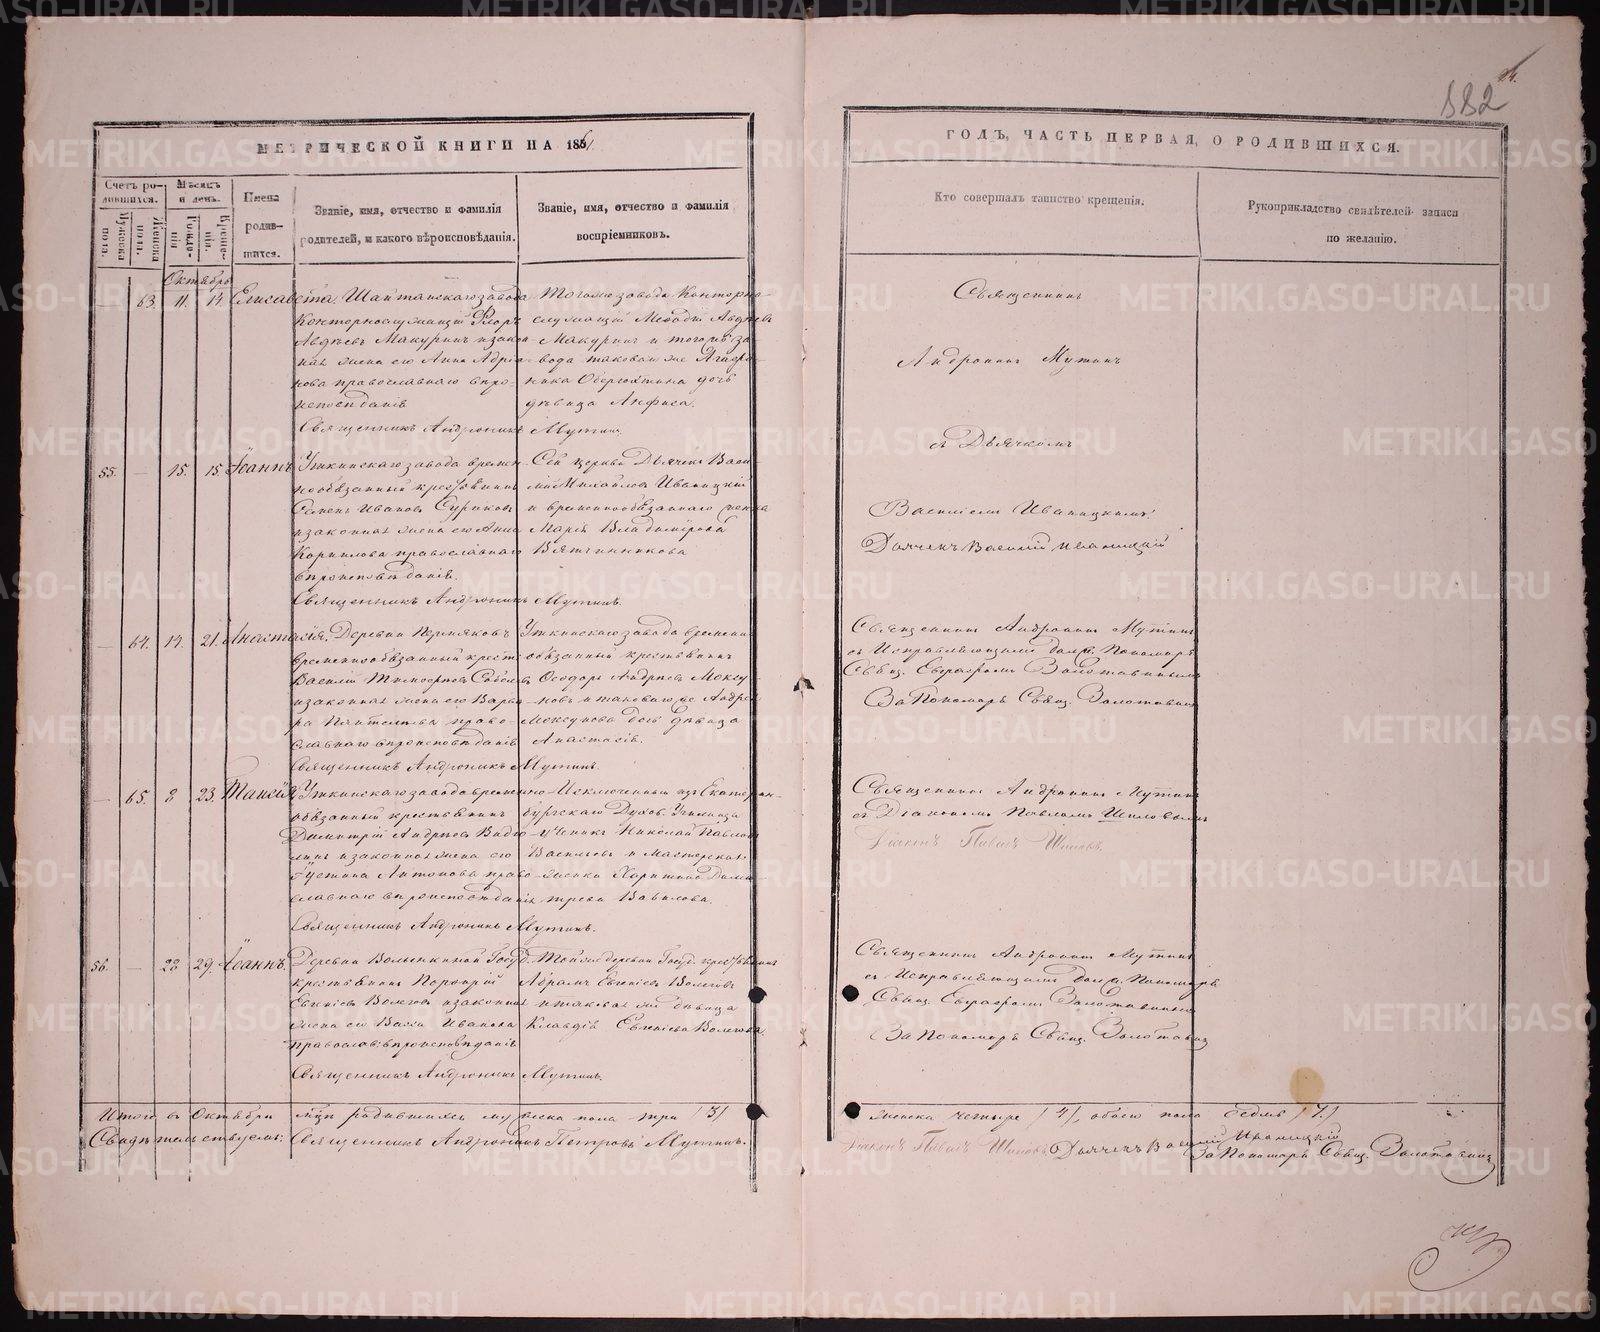 882
МЕТРИЧЕСКОЙ КНИГИ НА 1861
ГОДЪ, ЧАСТЬ ПЕРВАЯ, О РОДИВШИХСЯ.
Счетъ ро-
дившихся.
Мужеска
пола.
Женска
пола.
Мѣсяцъ
и день.
Рожде-
нія
Креще-
нія.
Имена
родив-
шихся.
Званіе, имя, отчество и фамилія
родителей, и какого вѣроисповѣданія.
Званіе, имя, отчество и фамилія
воспріемниковъ.
Кто совершалъ таинство крещенія.
Рукоприкладство свидѣтелей записи
по желанію.
Октябрь
63. 11. 14. Елисавета
Шайтанскаго завода
Конторнослужащій Флоръ
Авдѣевъ Макуринъ и закон-
ная жена его Анна Адріа-
нова православнаго вѣро-
исповѣданія
Тогоже завода Конторно-
служащій Меѳодій Авдѣевъ
Макуринъ и тогожъ за-
вода таковаго же
дочь
дѣвица Анфиса.
Священникъ Андроникъ Мутинъ.
Священникъ
Андроникъ Мутинъ
съ Дьячкомъ
Василіемъ Иваницкимъ.
Дьячекъ Василій Иваницкій
55. — 15. 15. Іоаннъ
Уткинскаго завода времен-
нообязанный крестьянинъ
Семенъ Ивановъ Суриковъ
и законная жена его Анна
Корнилова православнаго
вѣроисповѣданія.
Сей церкви Дьячекъ Васи-
лій Михайловъ Иваницкій
и временнообязаннаго женка
Марія Владимірова
Вятчинникова
Священникъ Андроникъ Мутинъ.
— 64. 14. 21. Анастасія.
Деревни Пермяковъ
временнообязанный крест:
Василій Тимоѳеевъ
и законная жена его Варва-
ра Пантелѣева право-
славнаго вѣроисповѣданія
Уткинскаго завода временно
обязанный крестьянинъ
Ѳеодоръ Андреевъ Моксу-
новъ и таковаго же Андрея
Моксунова дочь дѣвица
Анастасія.
Священникъ Андроникъ Мутинъ.
Священникъ Андроникъ Мутинъ
съ Исправляющимъ долж. Пономаря
Свящ. Евграфомъ Золотавинымъ
За Пономаря Свящ. Золотавинъ
— 65. 8 23. Таисія
Уткинскаго завода временно-
обязанный крестьянинъ
Димитрій Андреевъ
и законная жена его
Іустина Антонова право-
славнаго вѣроисповѣданія
Исключенный изъ Екатерин-
бургскаго Духов. Училища
ученикъ Николай Павловъ
Васильевъ и Мастерская
женка Харитина Дими-
тріева Вавилова.
Священникъ Андроникъ Мутинъ.
Священникъ Андроникъ Мутинъ
съ Діакономъ Павломъ Шиловымъ
Діаконъ Павелъ Шиловъ
56. — 22 29. Іоаннъ.
Деревни Волынкиной Госуд.
крестьянинъ Порфирій
Евгеніевъ Волеговъ и законная
жена его Васса Иванова
православ: вѣроисповѣданія
Тойже деревни Госуд. крестьянинъ
Абрамъ Евгеніевъ Волеговъ
и таковая же дѣвица
Клавдія Евгеніева Волегова.
Священникъ Андроникъ Мутинъ.
Священникъ Андроникъ Мутинъ
съ Исправляющимъ долж. Пономаря
Свящ. Евграфомъ Золотавинымъ
За Пономаря Свящ. Золотавинъ
Итого въ Октябрѣ мцѣ родившихся мужеска пола три /3/
женска четыре /4/, обоего пола седмь /7./
Свидѣтельствуемъ: Священникъ Андроникъ Петровъ Мутинъ.
Діаконъ Павелъ Шиловъ Дьячекъ Василій Иваницкій
За Пономаря Свящ. Золотавинъ